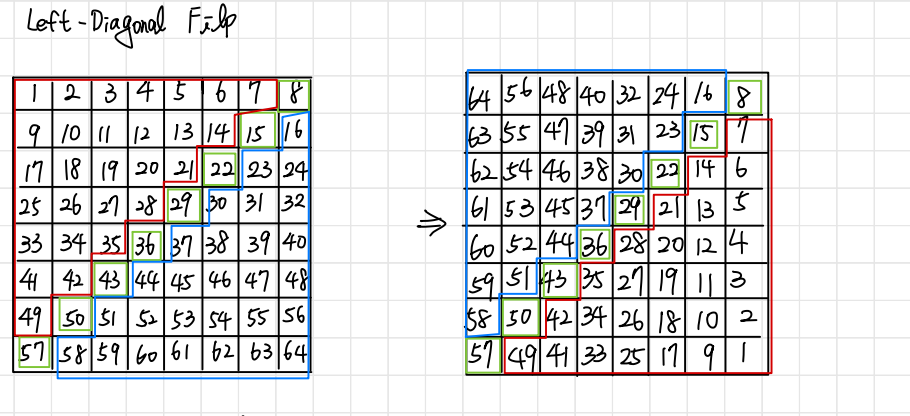 Left-Diagonal Filp
1 2 3 4 5 6 7 8
9 10 11 12 13 14 15 16
17 18 19 20 21 22 23 24
25 26 27 28 29 30 31 32
33 34 35 36 37 38 39 40
41 42 43 44 45 46 47 48
49 50 51 52 53 54 55 56
57 58 59 60 61 62 63 64
⇒
64 56 48 40 32 24 16 8
63 55 47 39 31 23 15 7
62 54 46 38 30 22 14 6
61 53 45 37 29 21 13 5
60 52 44 36 28 20 12 4
59 51 43 35 27 19 11 3
58 50 42 34 26 18 10 2
57 49 41 33 25 17 9 1